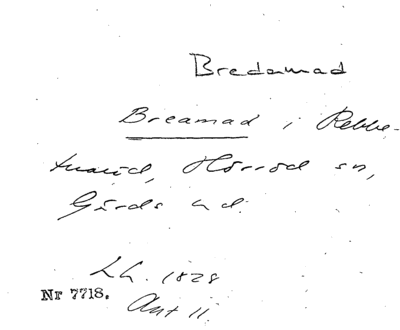 Bredamad
Breamad i Rebbe-
tuaröd, Hörröd sn,
Gärds hd.
LA. 1828
Nr 7718.
Akt 11